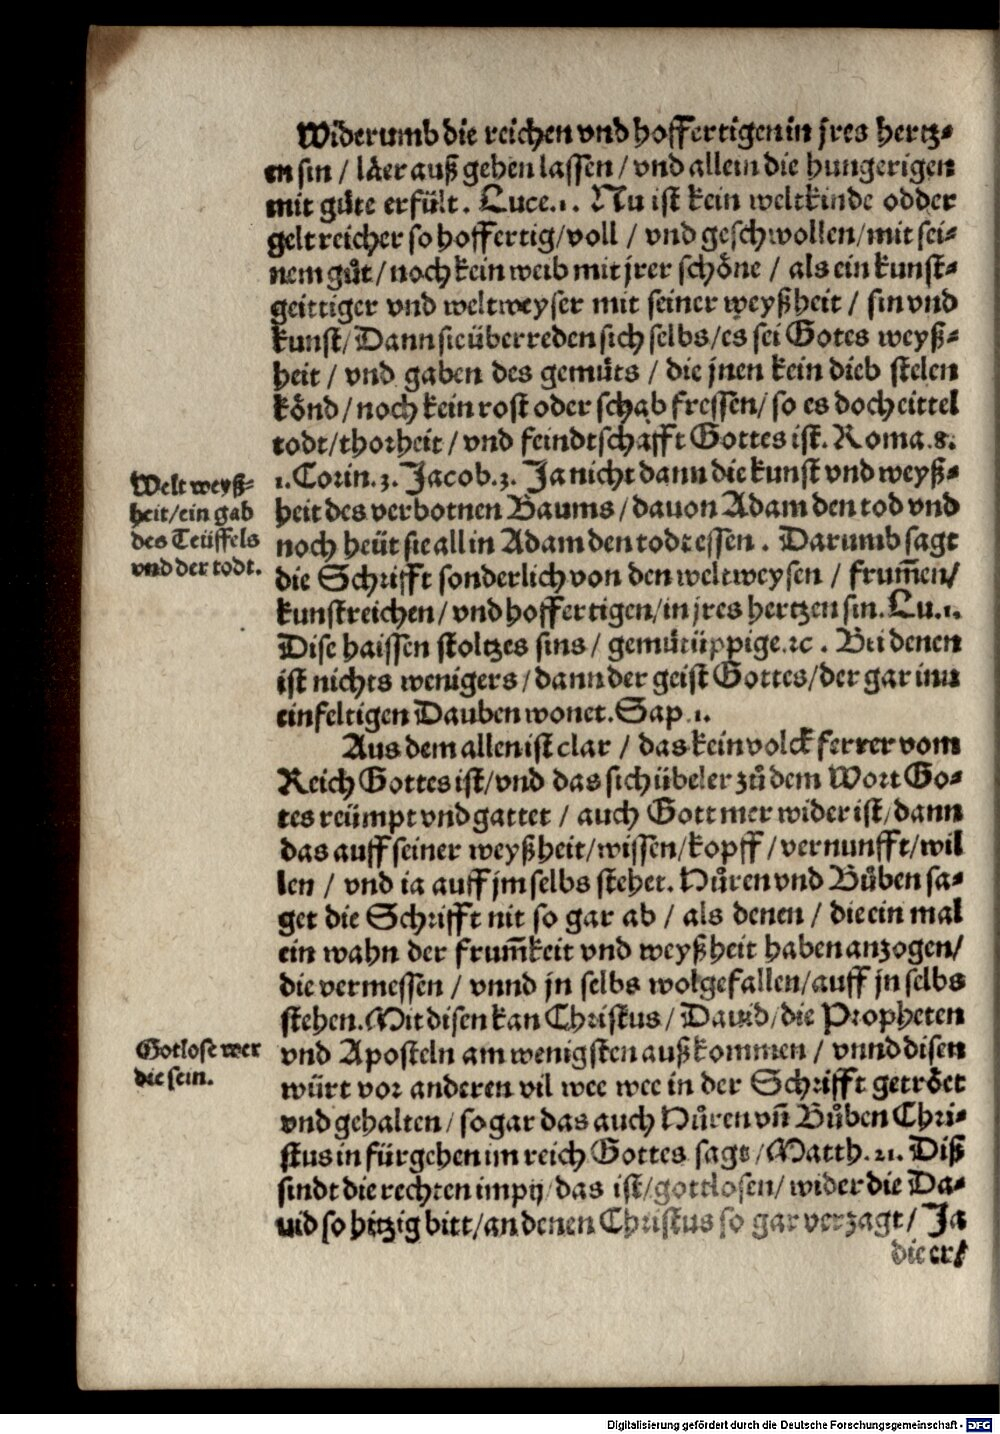 Widerumb die reichen vnd hoffertigen in jres hertz⸗
en sin / läer auß gehen lassen / vnd allein die hungerigen
mit gůte erfült. Luce.1. Nu ist kein weltkinde odder
gelt reicher so hoffertig/voll / vnd geschwollen/mit sei⸗
nem gůt/noch kein weib mit jrer schöne / als ein kunst⸗
geittiger vnd weltweyser mit seiner weyßheit / sin vnd
kunst/Dann sie überreden sich selbs/es sei Gotes weyß⸗
heit / vnd gaben des gemüts / die jnen kein dieb stelen
könd/noch kein rost oder schab fressen/ so es doch eittel
todt/thorheit/vnd feindtschafft Gottes ist. Roma.8.
1.Corin.3. Jacob.3. Ja nicht dann die kunst vnd weyß⸗
heit des verbotnen Baums/dauon Adam den tod vnd
noch heüt sie all in Adam den todt essen. Darumb sagt
die Schrifft sonderlich von den weltweysen / frum̃en/
kunstreichen/vnd hoffertigen/in jres hertzen sin.Lu.1.
Dise haissen stoltzes sins/ gemütüppige.ꝛc. Bei denen
ist nichts wenigers/dann der geist Gottes/der gar inn
einfeltigen Dauben wonet.Sap.1.
Welt weyß⸗
heit/ein gab
des Teüffels
vnd der todt.
Aus dem allen ist clar / das kein volck ferrer vom
Reich Gottes ist/vnd das sich übeler zů dem Wort Go⸗
tes reümpt vnd gattet / auch Gott mer wider ist/dann
das auff seiner weyßheit/wissen/kopff/vernunfft/wil
len / vnd ia auff jm selbs stehet. Hůren vnd Bůben sa⸗
get die Schrifft nit so gar ab / als denen / die ein mal
ein wahn der frum̃keit vnd weyßheit haben anzogen/
die vermessen / vnnd jn selbs wolgefallen/auff jn selbs
stehen.Mit disen kan Christus/Dauid/die Propheten
vnd Aposteln am wenigsten außkommen / vnnd disen
würt vor anderen vil wee wee in der Schrifft getröet
vnd gehalten/so gar das auch Hůren vñ Bůben Chri⸗
stus in fürgehen im reich Gottes sagt/Matth.21. Diß
sindt die rechten impij/das ist/gottlosen/wider die Da⸗
uid so hitzig bitt/an denen Christus so gar verzagt/ Ja
Gotlose wer
die sein.
die er/
Digitalisierung gefördert durch die Deutsche Forschungsgemeinschaft - DFG